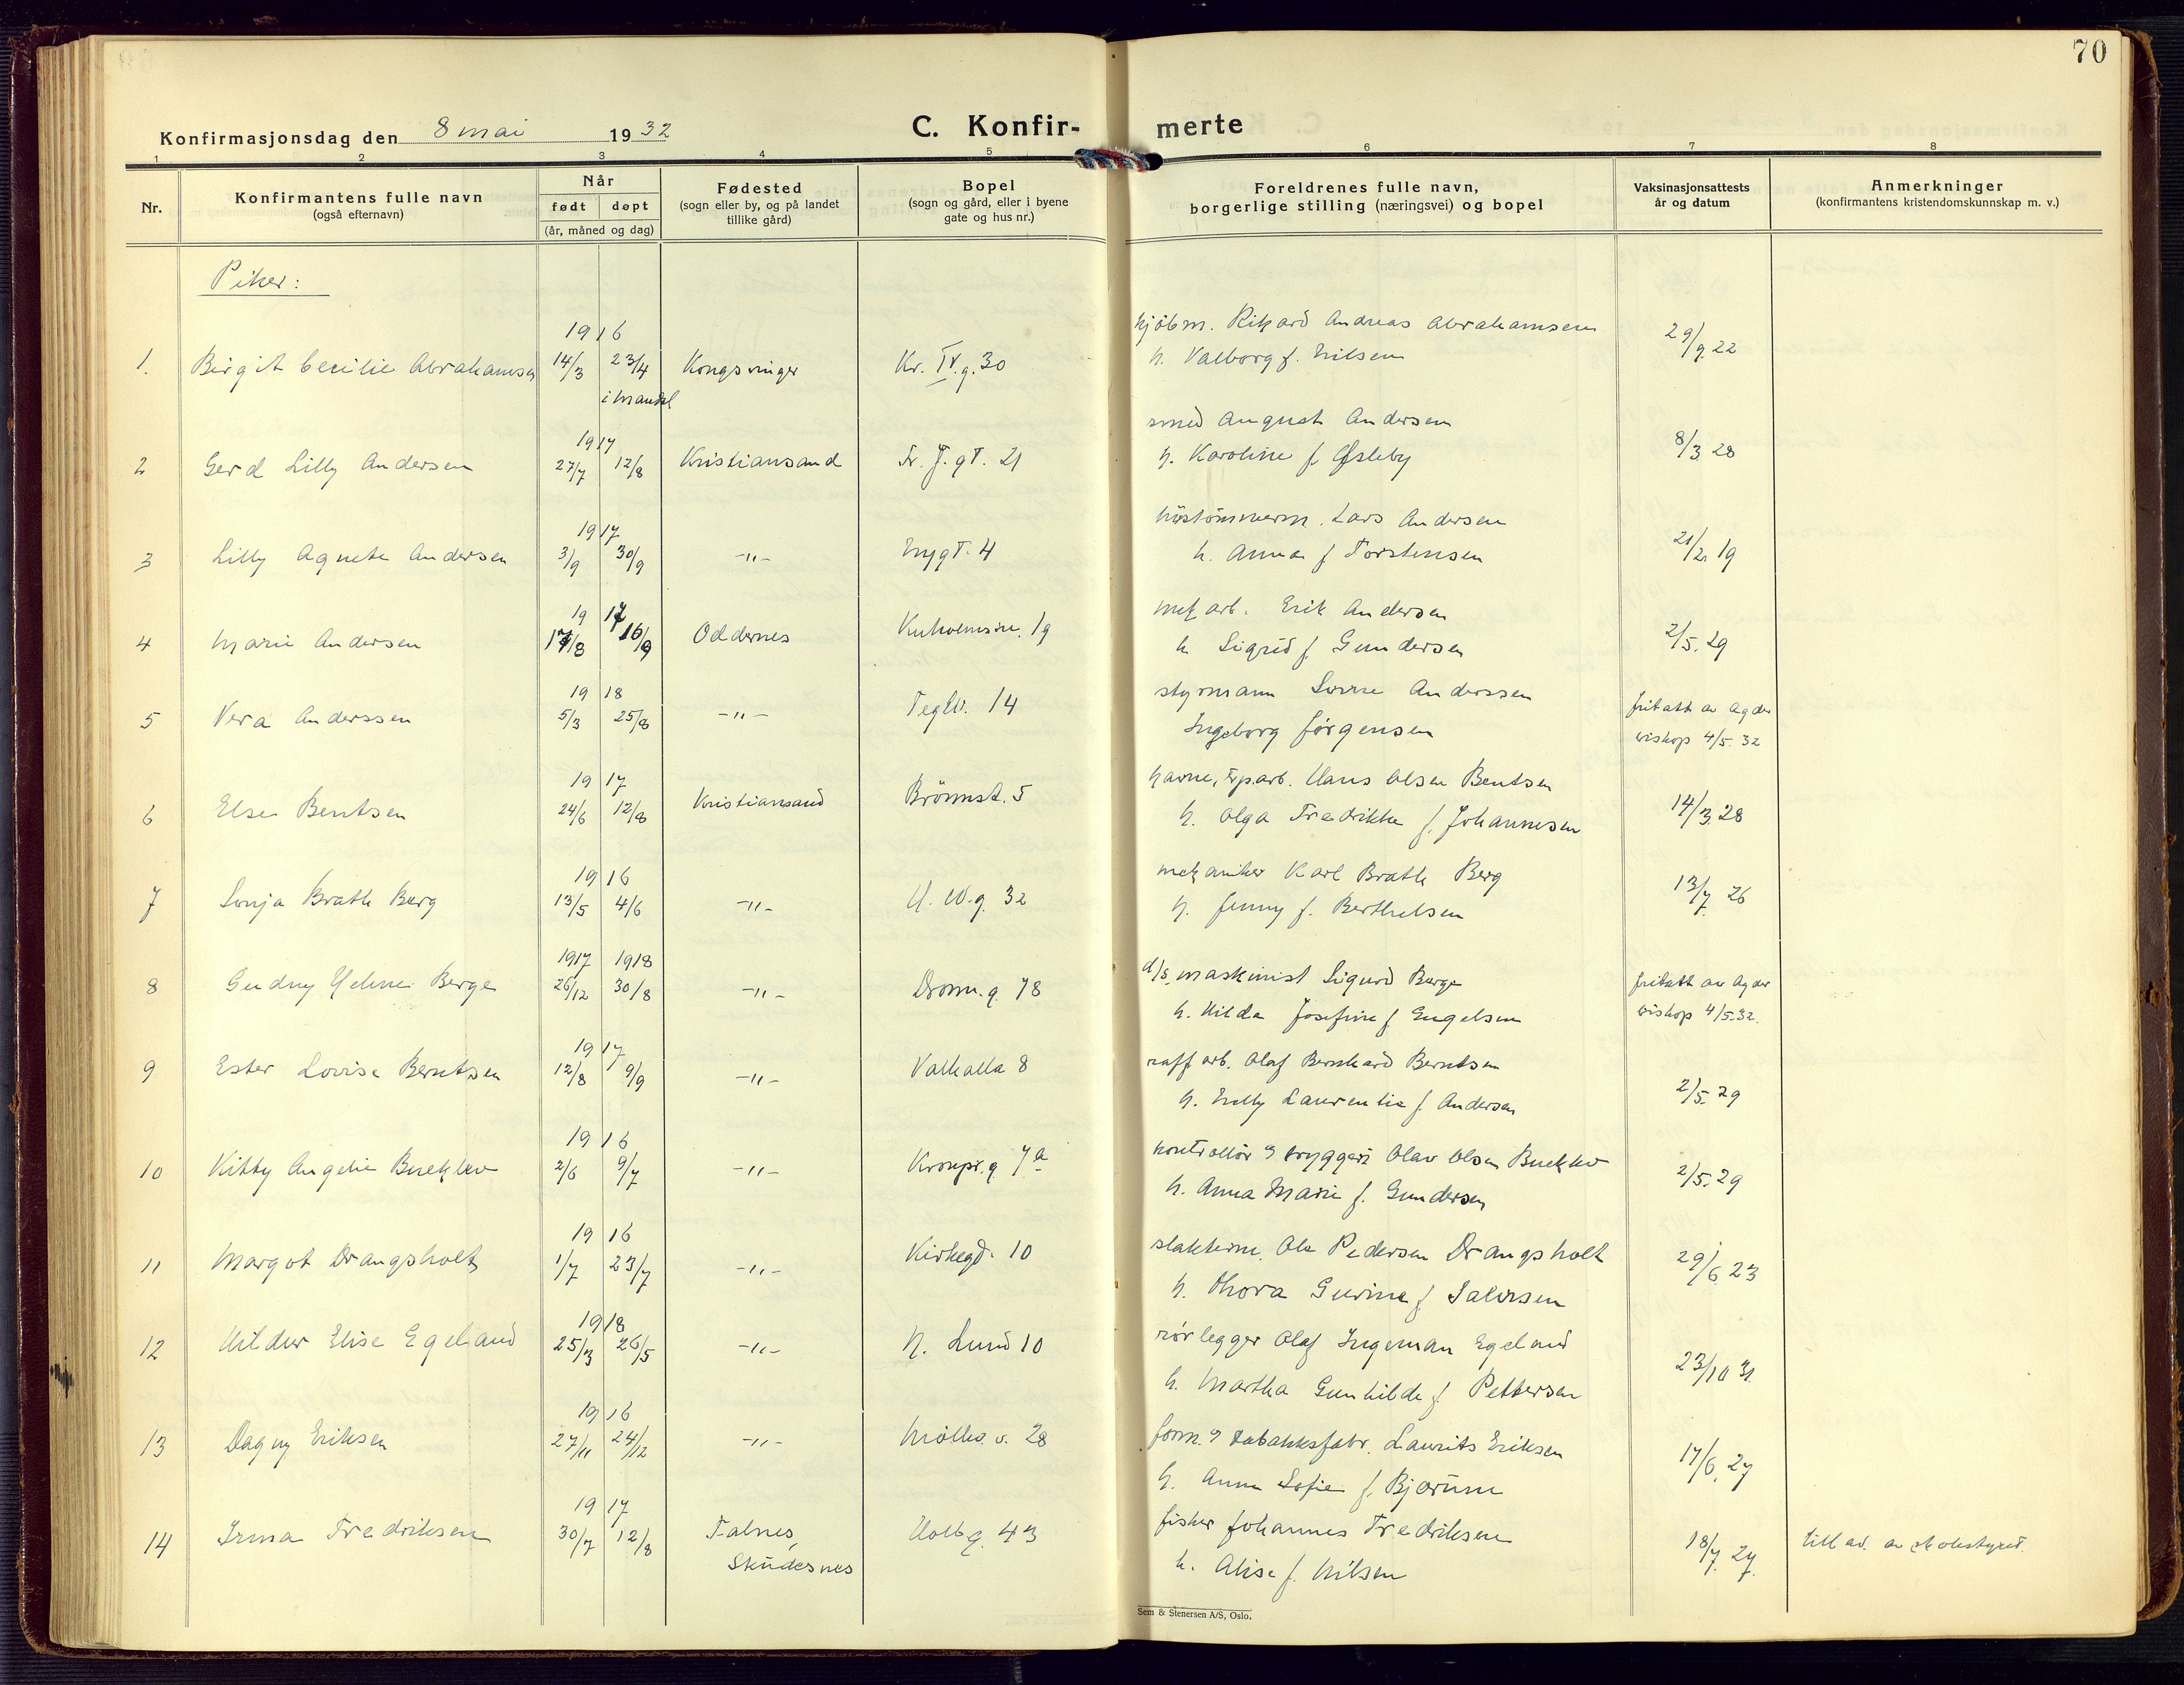 70
Konfirmasjonsdag den 8 mai 1932
C. Konfir- merte
1 2 3 4 5 6 7 8
Nr.
Konfirmantens fulle navn
(også efternavn)
Når
født døpt
(år, måned og dag)
Fødested
(sogn eller by, og på landet
tillike gård)
Bopel
(sogn og gård, eller i byene
gate og hus nr.)
Foreldrenes fulle navn,
borgerlige stilling (næringsvei) og bopel
Vaksinasjonsattests
år og datum
Anmerkninger
(konfirmantens kristendomskunnskap m. v.)
Piker:
1916
1. Birgit Cecilie Abrahamsen 14/3 23/4 Kongsvinger Kr. IV. g. 30
i Mandal
kjøbm. Rikard Andreas Abrahamsen
h. Valborg f. Nilsen
29/9 22
1917
2 Gerd Lilly Andersen 27/7 12/8 Kristiansand Fr. F. gt. 21
smed August Andersen
h. Karoline f.
8/3 28
1917
3 Lilly Agnete Andersen 3/9 30/9 -"- Nygt. 4
Lars Andersen
h. Anna f Torstensen
21/2 19
1917
4 Marie Andersen 17/8 16/9 Oddernes Kuholmsv. 19
mek arb. Erik Andersen
h Sigrid f Gundersen
2/5. 29
1918
5 Vera Anderssen 5/3 25/8 -"- Teglv. 14
styrmann Sverre Anderssen
Ingeborg Jørgensen
fritatt av Agder
biskop 4/5. 32
1917
6 Else Bentsen 24/6 12/8 Kristiansand Brönnst. 5
havne, Hans Olsen Bentsen
h. Olga Fredrikke f. Johannesen
14/3 28
1916
7 Sonja Brath Berg 13/5 4/6 -"- H. W. g. 32
mekaniker Karl Brath Berg
h. Jenny f. Berthelsen
13/7 26
1917 1918
8 Gudny Helene Berge 26/12 30/8 -"- Dronn. g. 78
d/s. maskinist Sigurd Berge
h. Hilda Josefine f Engelsen
fritatt av Agder
biskop 4/5.32.
1917
9 Ester Lovise Berntsen 12/8 9/9 -"- Valhalla 8
raff arb. Olaf Bernhard Berntsen
h. Laurentie f. Andersen
2/5. 29
1916
10 Kitty Angelie 2/6 9/7 -"- Kronpr. g 7a
kontrollør bryggeri Olav Olsen
h. Anna Marie f. Gundersen
2/5. 29
1916
11 Margot Drangsholt 1/7 23/7 -"- Kirkegd. 10
slakterm. Ole Pedersen Drangsholt
h. Thora Gurine f Salvesen
29/6. 23
1918
12 Hildur Elise Egeland 25/3 26/5 -"- N. Lund 10
rørlegger Olaf Ingeman Egeland
h. Martha Gunhilde f. Pettersen
23/10 31
1916
13 Dagny Eriksen 27/11 24/12 -"- Mölleg. v. 28
form. tobakksfabr. Laurits Eriksen
h. Anna Sofie f. Bjørum
17/6. 27
1917
14 Irma Fredriksen 30/7 12/8 Falnes, Holbg. 43
Skudesnes
fisker Johannes Fredriksen
h. Alise f. Nilsen
18/7. 27.
till av. av skolestyret.
Sem & Stenersen A/S, Oslo.